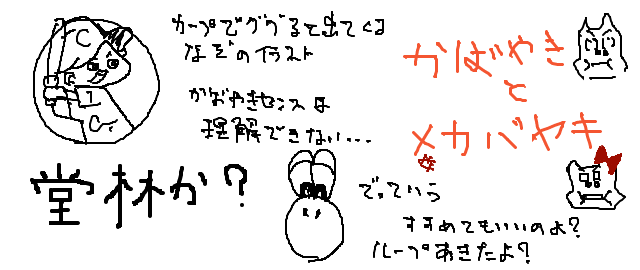 カープでググると出てくる
なぞのイラスト
かばやきセンスは
理解できない...
かばやき
と
メカバヤキ
堂林か?
でっていう
すすめてもいいのよ?
ループあきたよ?
C
C